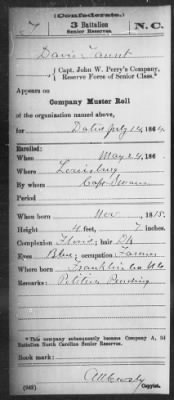 (Confederate.)
3 Battalion
Senior Reserves.
N.C.
Capt. John W. Perry's Company,
Reserve Force of Senior Class.*
Appears on
Company Muster Roll
of the organization named above,
for Dated July 14, 1864.
Enrolled:
When May 24, 186 .
Where Louisburg
By whom Capt
Period
When born Nov 1815.
Height feet, 7 inches.
Complexion ; hair Dk
Eyes Blue; occupation Farmer
Where born Franklin Co NC
Remarks: Petition Pending
*This company subsequently became Company A, 3d
Battalion North Carolina Senior Reserves.
Book mark:
(943)
Copyist.